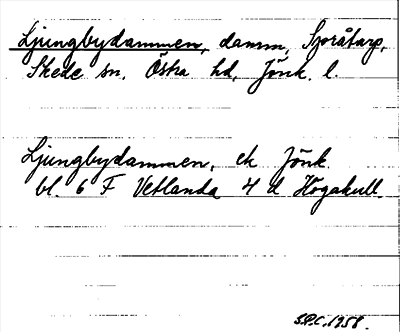 Ljungbydammen, damm, Sporåtarp,
Skede sn, Östra hd, Jönk. l.
Ljungbydammen, ek Jönk
bl. 6 F Vetlanda 4 d Högakull.
S.P.C. 1958.